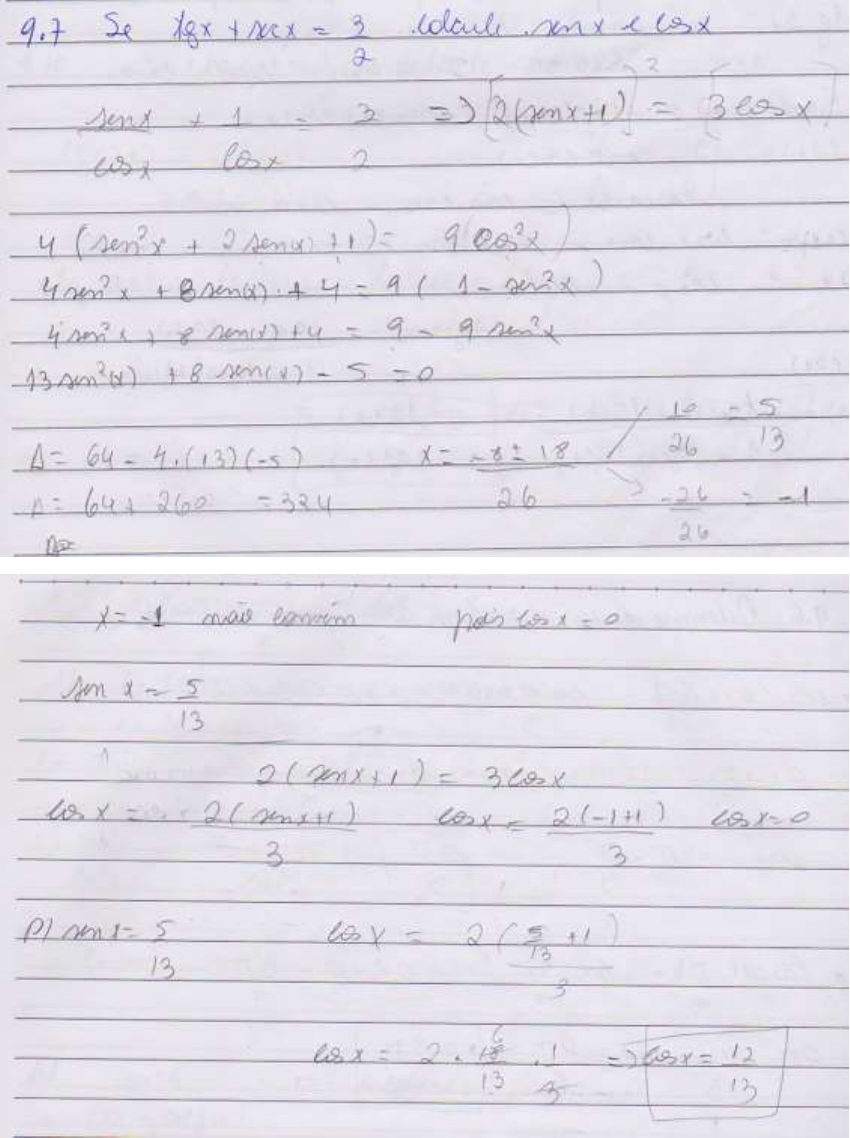 9.7 Se tgx + secx = 3/2 calcule senx e cosx
senx/cosx + 1/cosx = 3/2 => [2(senx+1)]² = [3cosx]
4 (sen²x + 2sen(x) + 1) = 9cos²x)
4sen²x + 8sen(x) + 4 = 9( 1 - sen²x )
4sen²x + 8 sen(x) + 4 = 9 - 9 sen²x
13sen²(x) + 8 sen(x) - 5 = 0
Δ = 64 - 4.(13)(-5) x = -8 ± 18/26 10/26 = 5/13
Δ = 64 + 260 = 324 -26/26 = -1
Δ=
x = -1 não convém pois cosx = 0
sen x = 5/13
2(senx+1) = 3cosx
cosx = 2(senx+1)/3 cosx = 2(-1+1)/3 cosx=0
P/ senx = 5/13 cosx = 2(5/13 + 1)/3
cosx = 2 . 18/13 . 1/3 6 => cosx = 12/13